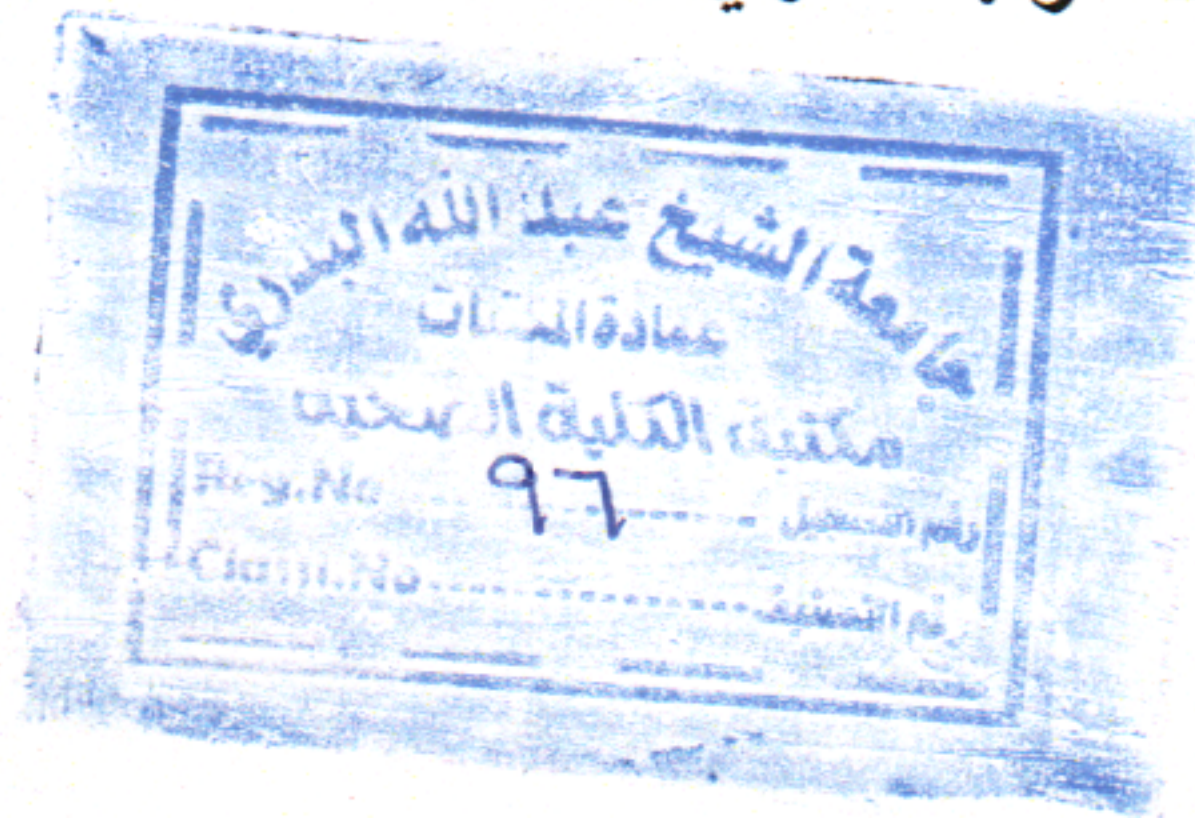 جامعة الشيخ عبد الله البدري
عمادة المكتبات
مكتبة الكلية
Reg.No ٩٦ رقم التسجيل
Class.No رقم التصنيف